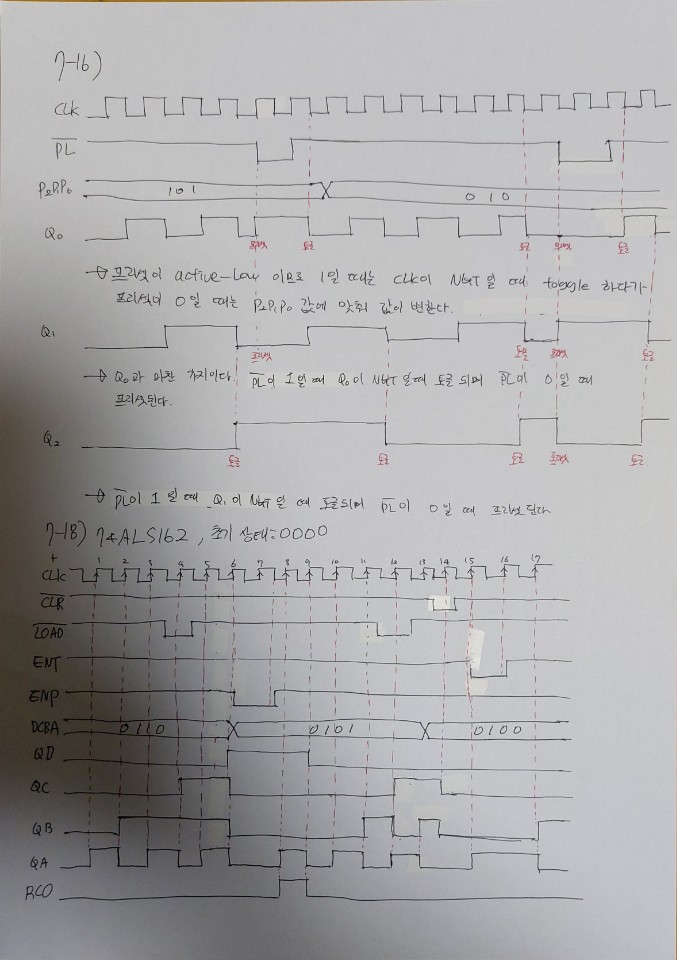 7-16)
CLK
PL
P2P1P0 101 010
Q0
프리셋 토글 토글 프리셋 토글
→ 프리셋이 active-low 이므로 1일 때는 CLK이 NGT일 때 toggle 하다가
프리셋이 0일 때는 P2P1P0 값에 맞춰 값이 변한다.
Q1
프리셋 토글 프리셋 토글
→ Q0과 마찬가지이다. PL이 1일때 Q0이 NGT일때 토글되며 PL이 0일 때
프리셋된다.
Q2
토글 토글 토글 프리셋 토글
→ PL이 1일 때 Q1이 NGT일 때 토글되며 PL이 0일 때 프리셋 된다
7-18) 74ALS162, 초기 상태=0000
1 2 3 4 5 6 7 8 9 10 11 12 13 14 15 16 17
CLK
CLR
LOAD
ENT
ENP
DCBA 0110 0101 0100
QD
QC
QB
QA
RCO